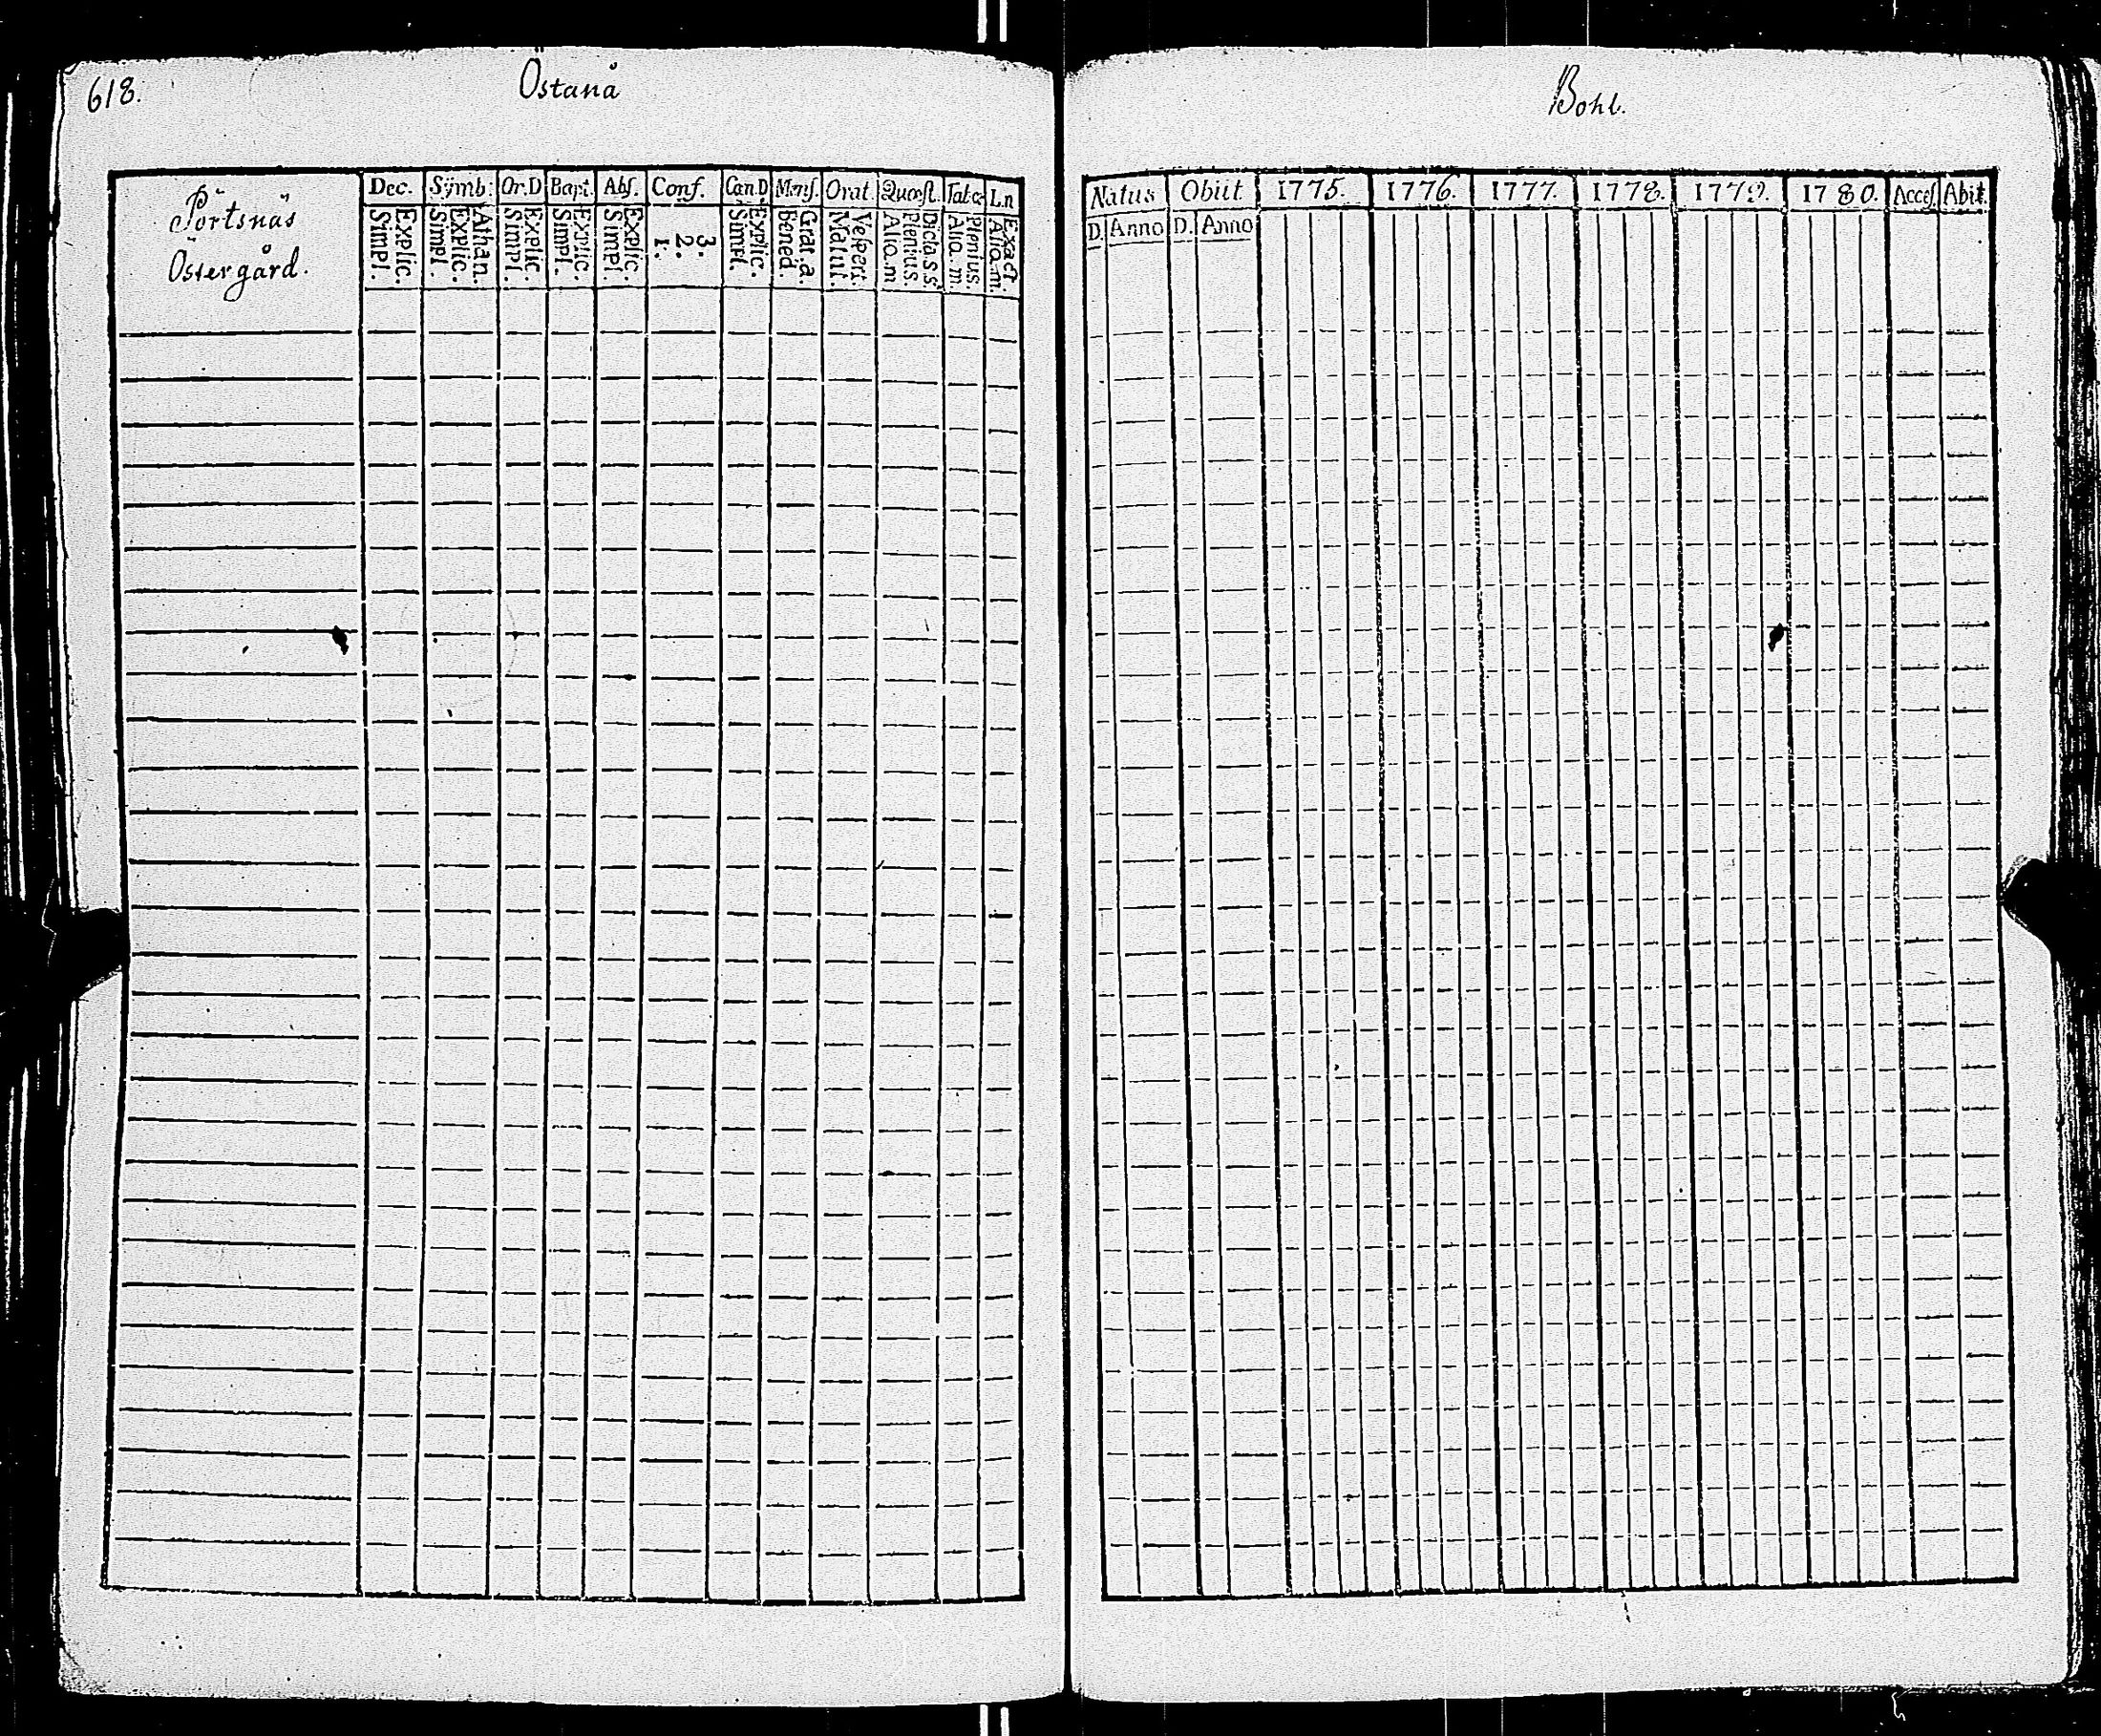 618.
Östanå
Bohl.
Pörtsnäs
Östergård.
Dec. Sÿmb. Or.D Bapt. Abs. Conf. Can.D Mens. Orat. Quæst. Tab.œ L.n
Simpl. Explic. Simpl. Explic. Athan. Simpl. Explic. Simpl. Explic. Simpl. Explic. 1. 2. 3. Simpl. Explic. Bened. Grat.a. Matut. Vespert. Alio.m Plenius. Dicta s.s. Alio.m. Plenius. Alio.m. Exact.
Natus Obiit 1775. 1776. 1777. 1778. 1779. 1780. Acces. Abit.
D. Anno D. Anno